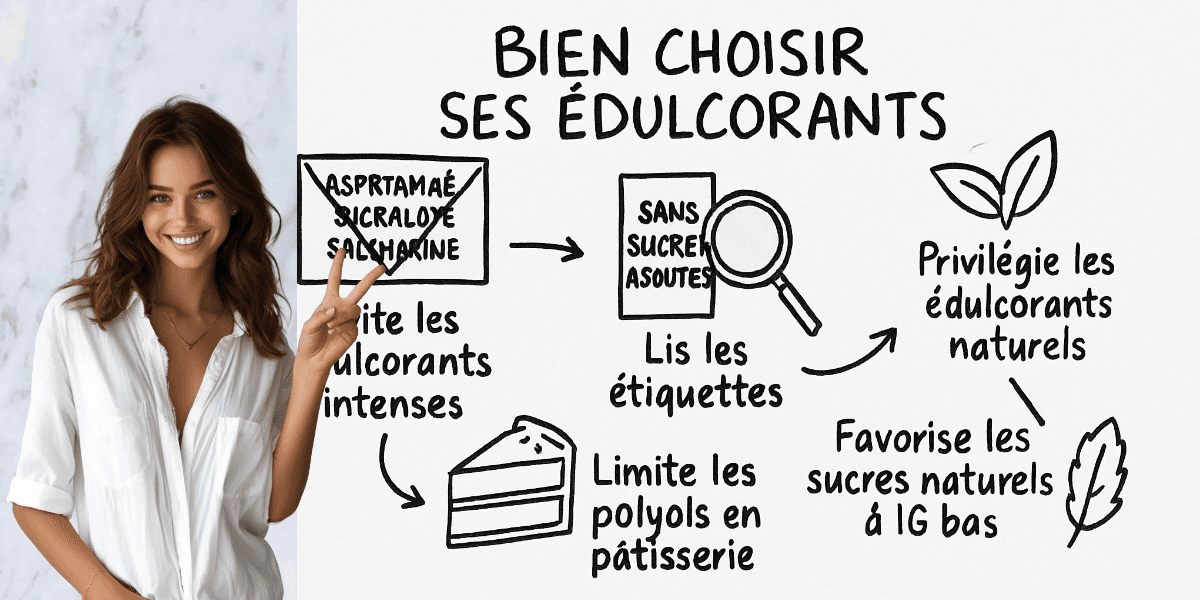 BIEN CHOISIR
SES ÉDULCORANTS
ASPRTAMAÉ
SICRALOYE
SALCHARINE
ite les
ulcorants
intenses
SANS
SUCRE
ASOUTES
Lis les
étiquettes
Privilégie les
édulcorants
naturels
Limite les
polyols en
pâtisserie
Favorise les
sucres naturels
á IG bas